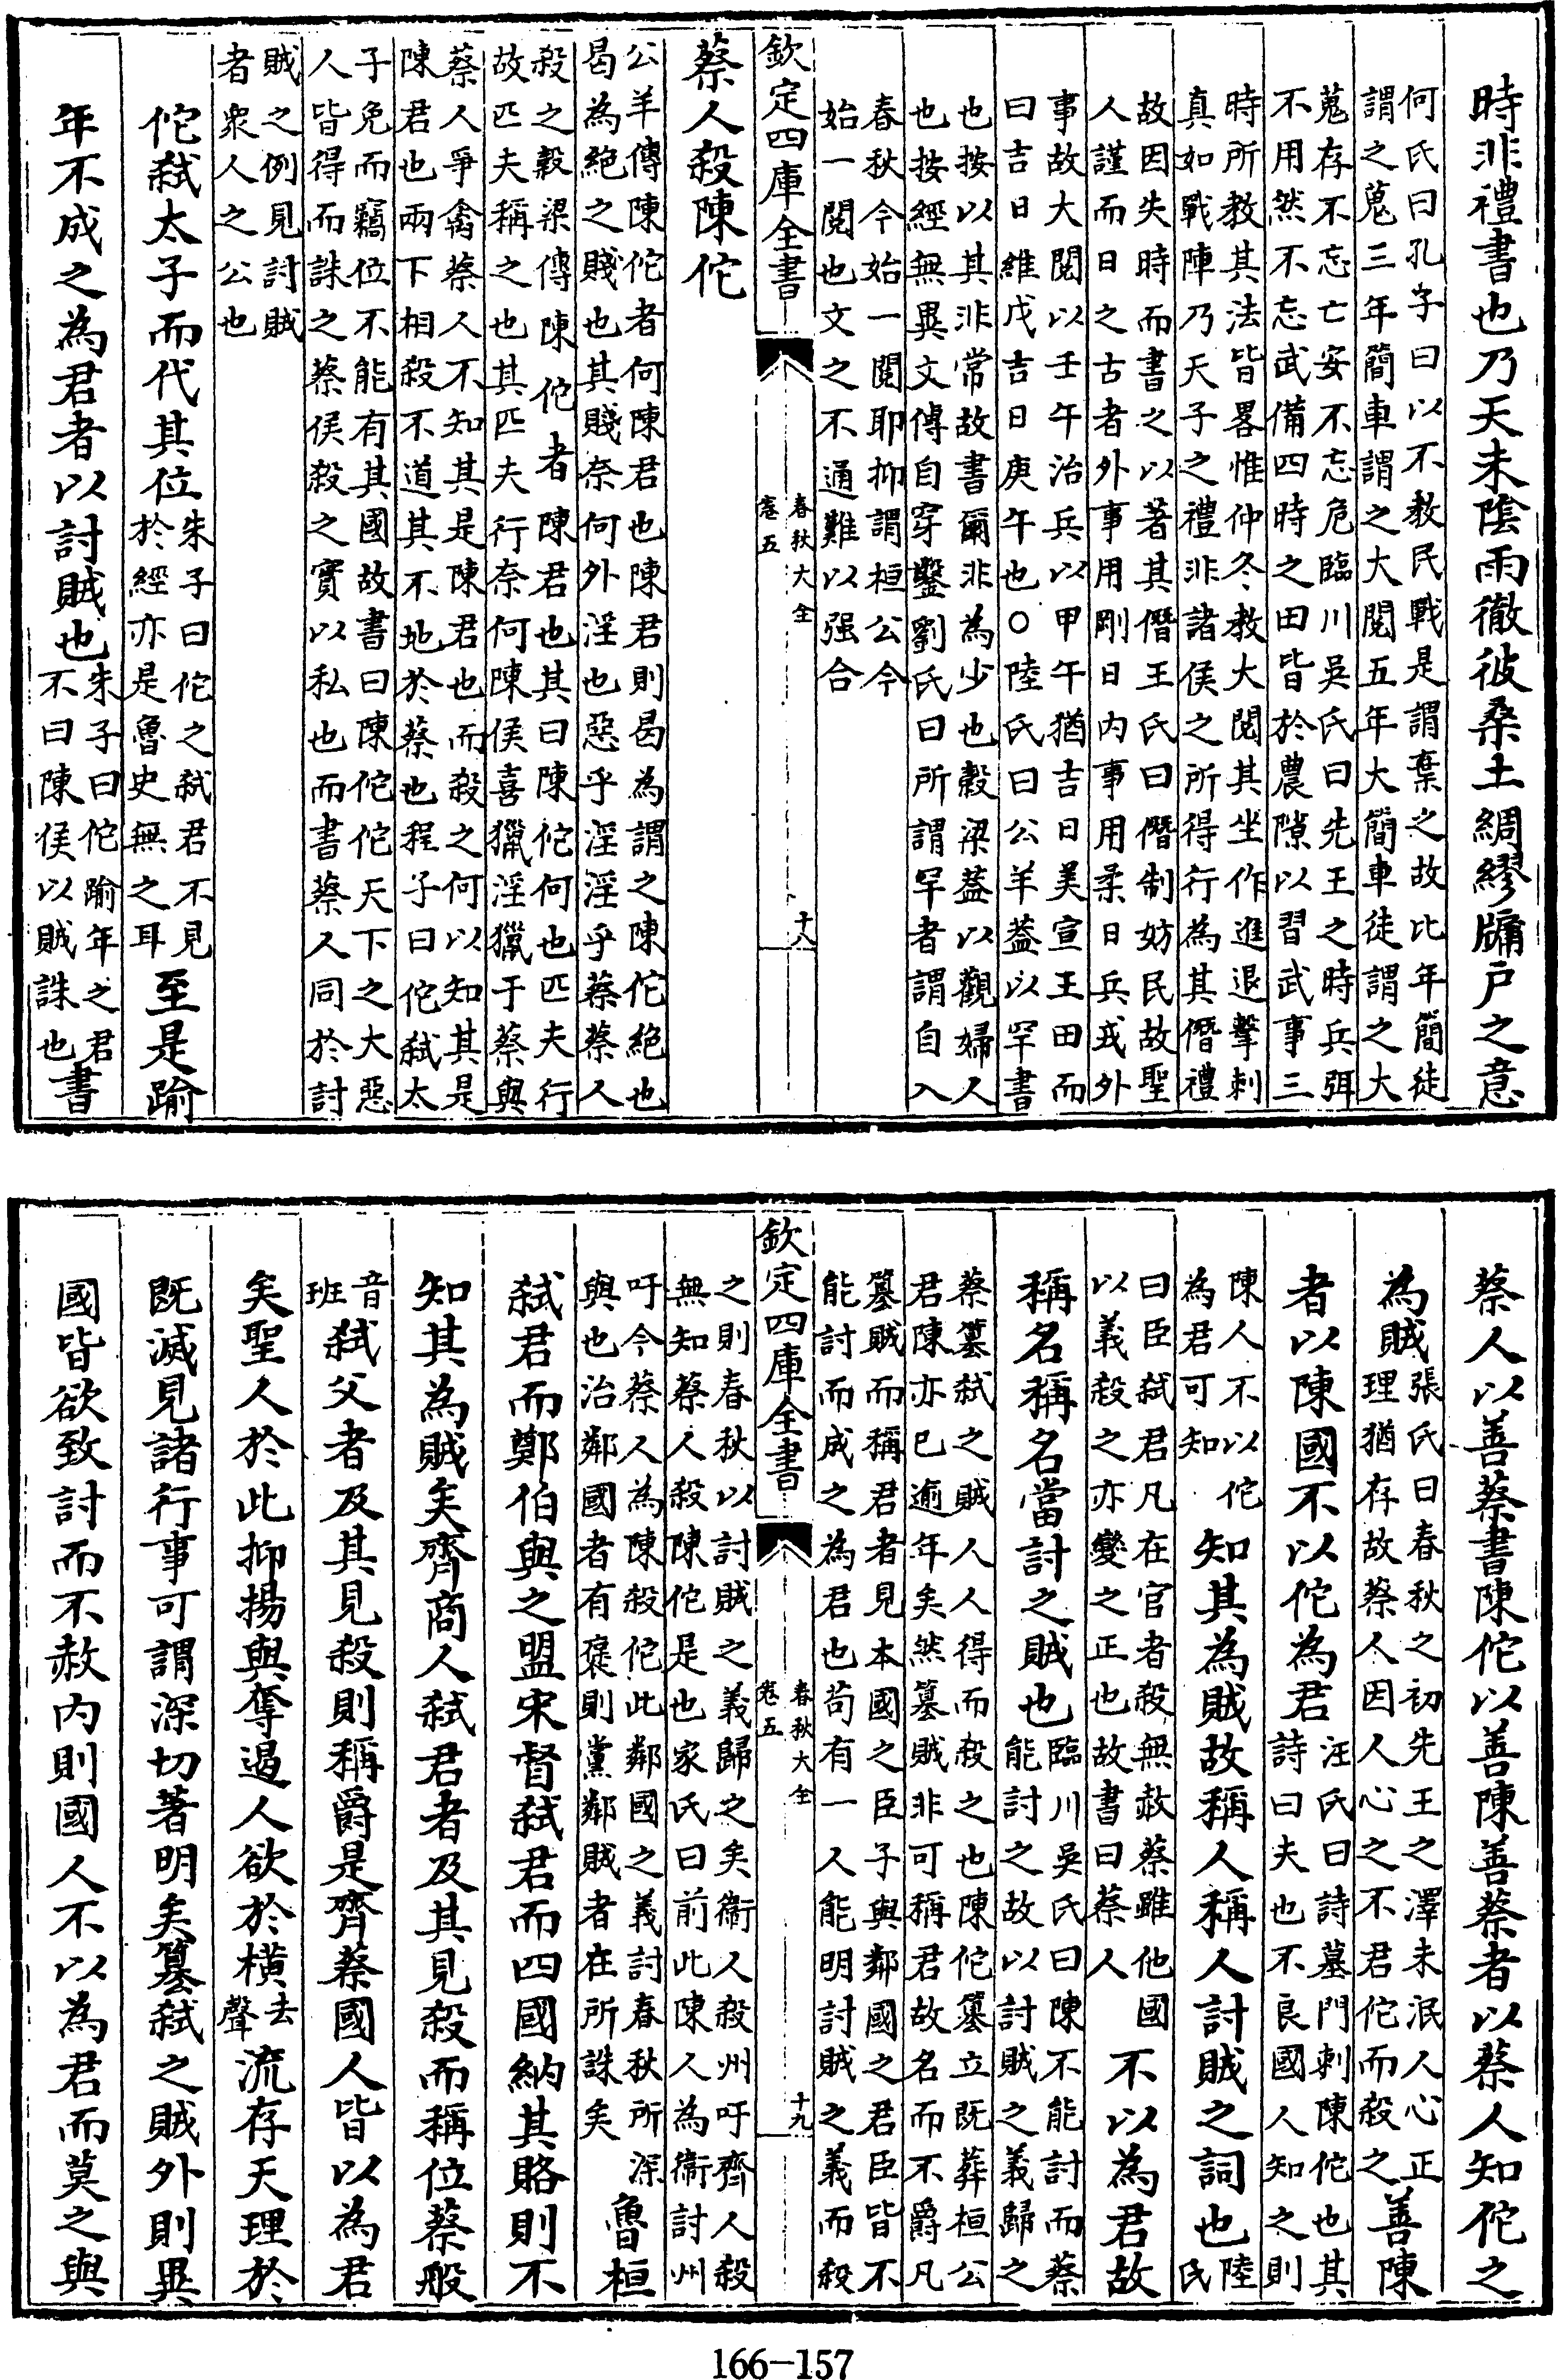 時非禮書也乃天未陰雨徹彼桑土綢繆牖戶之意
何氏曰孔子曰以不教民戰是謂棄之故比年簡徒
謂之蒐三年簡車謂之大閱五年大簡車徒謂之大
蒐存不忘亡安不忘危臨川吳氏曰先王之時兵弭
不用然不忘武備四時之田皆於農隙以習武事三
時所教其法皆畧惟仲冬教大閱其坐作進退擊刺
真如戰陣乃天子之禮非諸侯之所得行為其僭禮
故因失時而書之以著其僭王氏曰僭制妨民故聖
人謹而日之古者外事用剛日內事用柔日兵戎外
事故大閱以壬午治兵以甲午猶吉日美宣王田而
曰吉日維戊吉日庚午也○陸氏曰公羊蓋以罕書
也按以其非常故書爾非為少也穀梁蓋以觀婦人
也按經無異文傳自穿鑿劉氏曰所謂罕者謂自入
春秋今始一閱耶抑謂桓公今
始一閱也文之不通難以强合
欽定四庫全書
春秋大全
卷五
十八
蔡人殺陳佗
公羊傳陳佗者何陳君也陳君則曷為謂之陳佗絕也
曷為絕之賤也其賤奈何外淫也惡乎淫淫乎蔡蔡人
殺之穀梁傳陳佗者陳君也其曰陳佗何也匹夫行
故匹夫稱之也其匹夫行奈何陳侯喜獵淫獵于蔡與
蔡人爭禽蔡人不知其是陳君也而殺之何以知其是
陳君也兩下相殺不道其不地於蔡也程子曰佗弒太
子免而竊位不能有其國故書曰陳佗佗天下之大惡
人皆得而誅之蔡侯殺之實以私也而書蔡人同於討
賊之例見討賊
者衆人之公也
佗弒太子而代其位
朱子曰佗之弒君不見
於經亦是魯史無之耳
至是踰
年不成之為君者以討賊也
朱子曰佗踰年之君
不曰陳侯以賊誅也
書
蔡人以善蔡書陳佗以善陳善蔡者以蔡人知佗之
為賊
張氏曰春秋之初先王之澤未泯人心正
理猶存故蔡人因人心之不君佗而殺之
善陳
者以陳國不以佗為君
汪氏曰詩墓門刺陳佗也其
詩曰夫也不良國人知之則
陳人不以佗
為君可知
知其為賊故稱人稱人討賊之詞也
陸
氏
曰臣弒君凡在官者殺無赦蔡雖他國
以義殺之亦變之正也故書曰蔡人
不以為君故
稱名稱名當討之賊也
臨川吳氏曰陳不能討而蔡
能討之故以討賊之義歸之
蔡簒弒之賊人人得而殺之也陳佗簒立既葬桓公
君陳亦已逾年矣然簒賊非可稱君故名而不爵凡
簒賊而稱君者見本國之臣子與鄰國之君臣皆不
能討而成之為君也苟有一人能明討賊之義而殺
欽定四庫全書
春秋大全
卷五
十九
之則春秋以討賊之義歸之矣衞人殺州吁齊人殺
無知蔡人殺陳佗是也家氏曰前此陳人為衞討州
吁今蔡人為陳殺佗此鄰國之義討春秋所深
與也治鄰國者有褒則黨鄰賊者在所誅矣
魯桓
弒君而鄭伯與之盟宋督弒君而四國納其賂則不
知其為賊矣齊商人弒君者及其見殺而稱位蔡般
音
班
弒父者及其見殺則稱爵是齊蔡國人皆以為君
矣聖人於此抑揚與奪遏人欲於橫
去
聲
流存天理於
既滅見諸行事可謂深切著明矣簒弒之賊外則異
國皆欲致討而不赦內則國人不以為君而莫之與
166-157